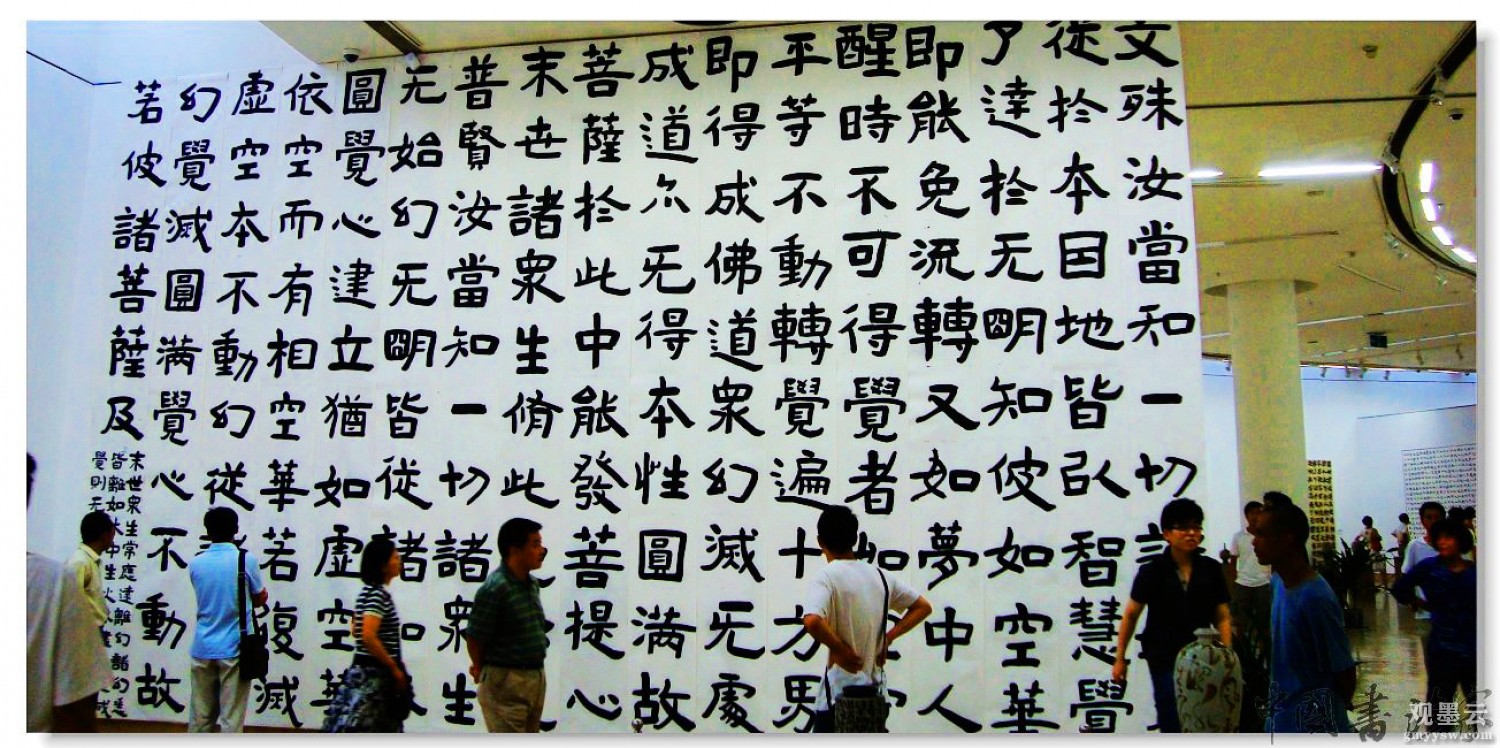 文殊汝當知一切
從於本因地皆以智慧覺
了達於无明知彼如空華
即能免流轉又如夢中人
醒時不可得覺者如
平等不動轉覺遍十方界
即得成佛道眾幻滅无處
成道尒无得本性圓满故
菩薩於此中能發菩提心
末世諸眾生脩此
普賢汝當知一切諸眾生
无始幻无明皆從諸如
圓覺心建立猶如虛空華
依空而有相空華若復滅
虛空本不動幻從
幻覺滅圓满覺心不動故
若彼諸菩薩及
末世眾生常應遠離幻諸幻悉
皆離如木中生火木
覺則无
观墨云
gmyysw.com